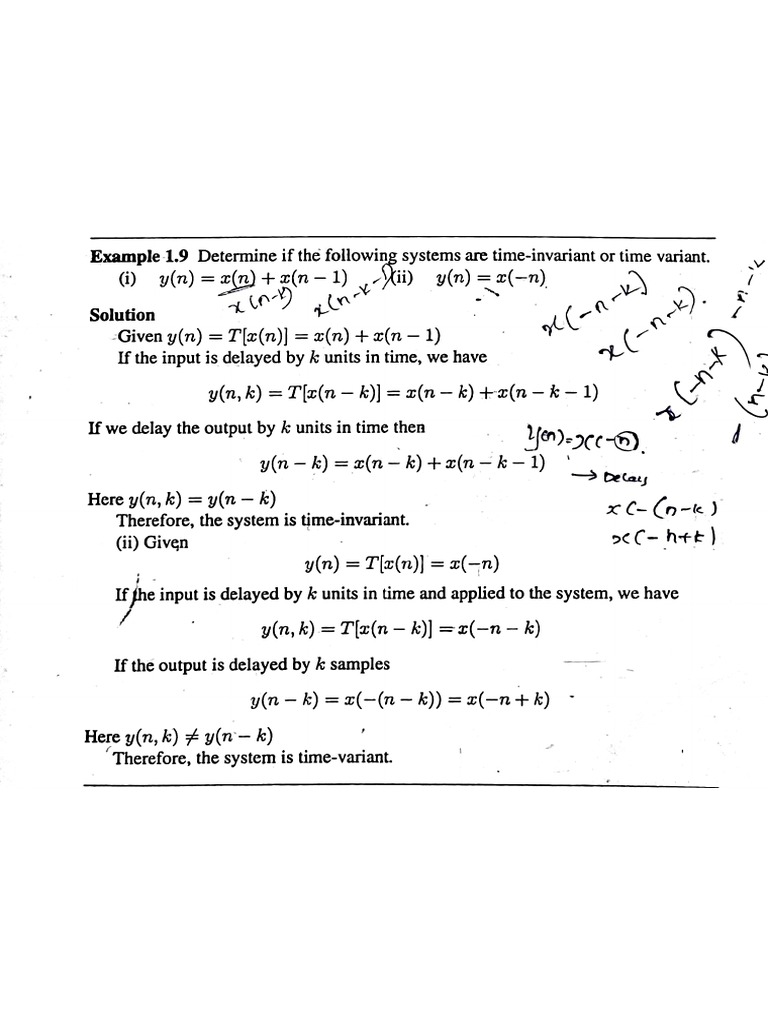 Example 1.9 Determine if the following systems are time-invariant or time variant.
(i) y(n) = x(n) + x(n − 1) (ii) y(n) = x(−n)
x(n-k) x(n-k-1)
x(-n-k)
x(-n-k).
x(-n-k)
-n-k
-(n-k)
Solution
Given y(n) = T[x(n)] = x(n) + x(n − 1)
If the input is delayed by k units in time, we have
y(n, k) = T[x(n − k)] = x(n − k) + x(n − k − 1)
If we delay the output by k units in time then
y(n)=x(-n).
y(n − k) = x(n − k) + x(n − k − 1)
→ Delay
Here y(n, k) = y(n − k)
x(-(n-k)
Therefore, the system is time-invariant.
x(-n+k)
(ii) Given
y(n) = T[x(n)] = x(−n)
If the input is delayed by k units in time and applied to the system, we have
y(n, k) = T[x(n − k)] = x(−n − k)
If the output is delayed by k samples
y(n − k) = x(−(n − k)) = x(−n + k)
Here y(n, k) ≠ y(n − k)
Therefore, the system is time-variant.